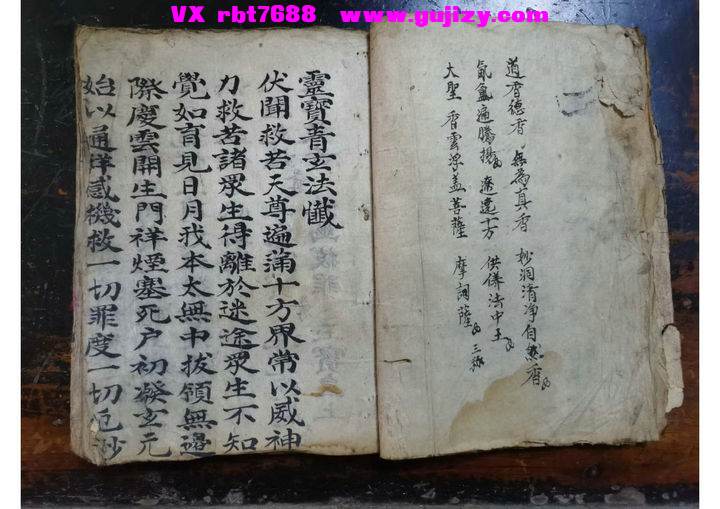 VX rbt7688 www.gujizy.com
道香德香 無為真香 妙洞清淨自然香
氤氳遍騰揚 遠達十方 供併法中王
大聖香雲浮盖菩薩 摩訶薩 三称
靈寶青玄法懺
伏聞救苦天尊遍滿十方界常以威神
力救苦諸眾生得離於迷途眾生不知
覺如盲見日月我本太無中拔領無邊
際慶雲開生門祥煙塞死户初發玄元
始以通祥感機救一切罪度一切厄